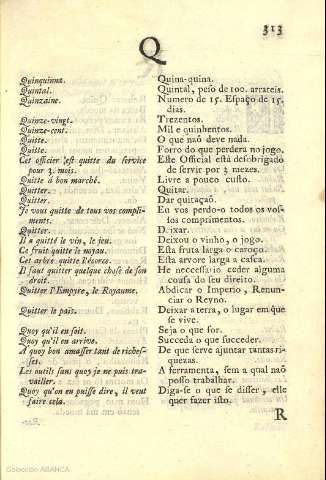 313
Q
Quinquinna. Quina-quina.
Quintal. Quintal, peso de 100. arrateis.
Quinzaine. Numero de 15. Espaço de 15.
dias.
Quinze-vingt. Trezentos.
Quinze-cent. Mil e quinhentos.
Quitte. O que naõ deve nada.
Quitte. Forro do que perdera no jogo.
Cet officier est quitte du service Este Official está desobrigado
pour 3. mois. de servir por 3 mezes.
Quitte à bon marché. Livre a pouco custo.
Quitter. Quitar.
Quitter. Dar quitaçaõ.
Je vous quitte de tous vos compli- Eu vos perdo-o todos os vos-
ments. sos comprimentos.
Quitter. Deixar.
Il a quitté le vin, le jeu. Deixou o vinho, o jogo.
Ce fruit quitte le noyau. Esta fruta larga o caroço.
Cet arbre quitte l'écorce. Esta arvore larga a casca.
Il faut quitter quelque chose de son He neccessario ceder alguma
droit. cousa do seu direito.
Quitter l'Empyre, le Royaume. Abdicar o Imperio, Renun-
ciar o Reyno.
Quitter le païs. Deixar a terra, o lugar em que
se vive.
Quoy qu'il en soit. Seja o que for.
Quoy qu'il en arrive. Succeda o que succeder.
A quoy bon amasser tant de riches- De que serve ajuntar tantas ri-
ses. quezas.
Les outils sans quoy je ne puis tra- A ferramenta, sem a qual naõ
vailler. posso trabalhar.
Quoy qu'on en puisse dire, il veut Diga-se o que se disser, elle
faire cela. quer fazer isto.
R
Colección ABANCA